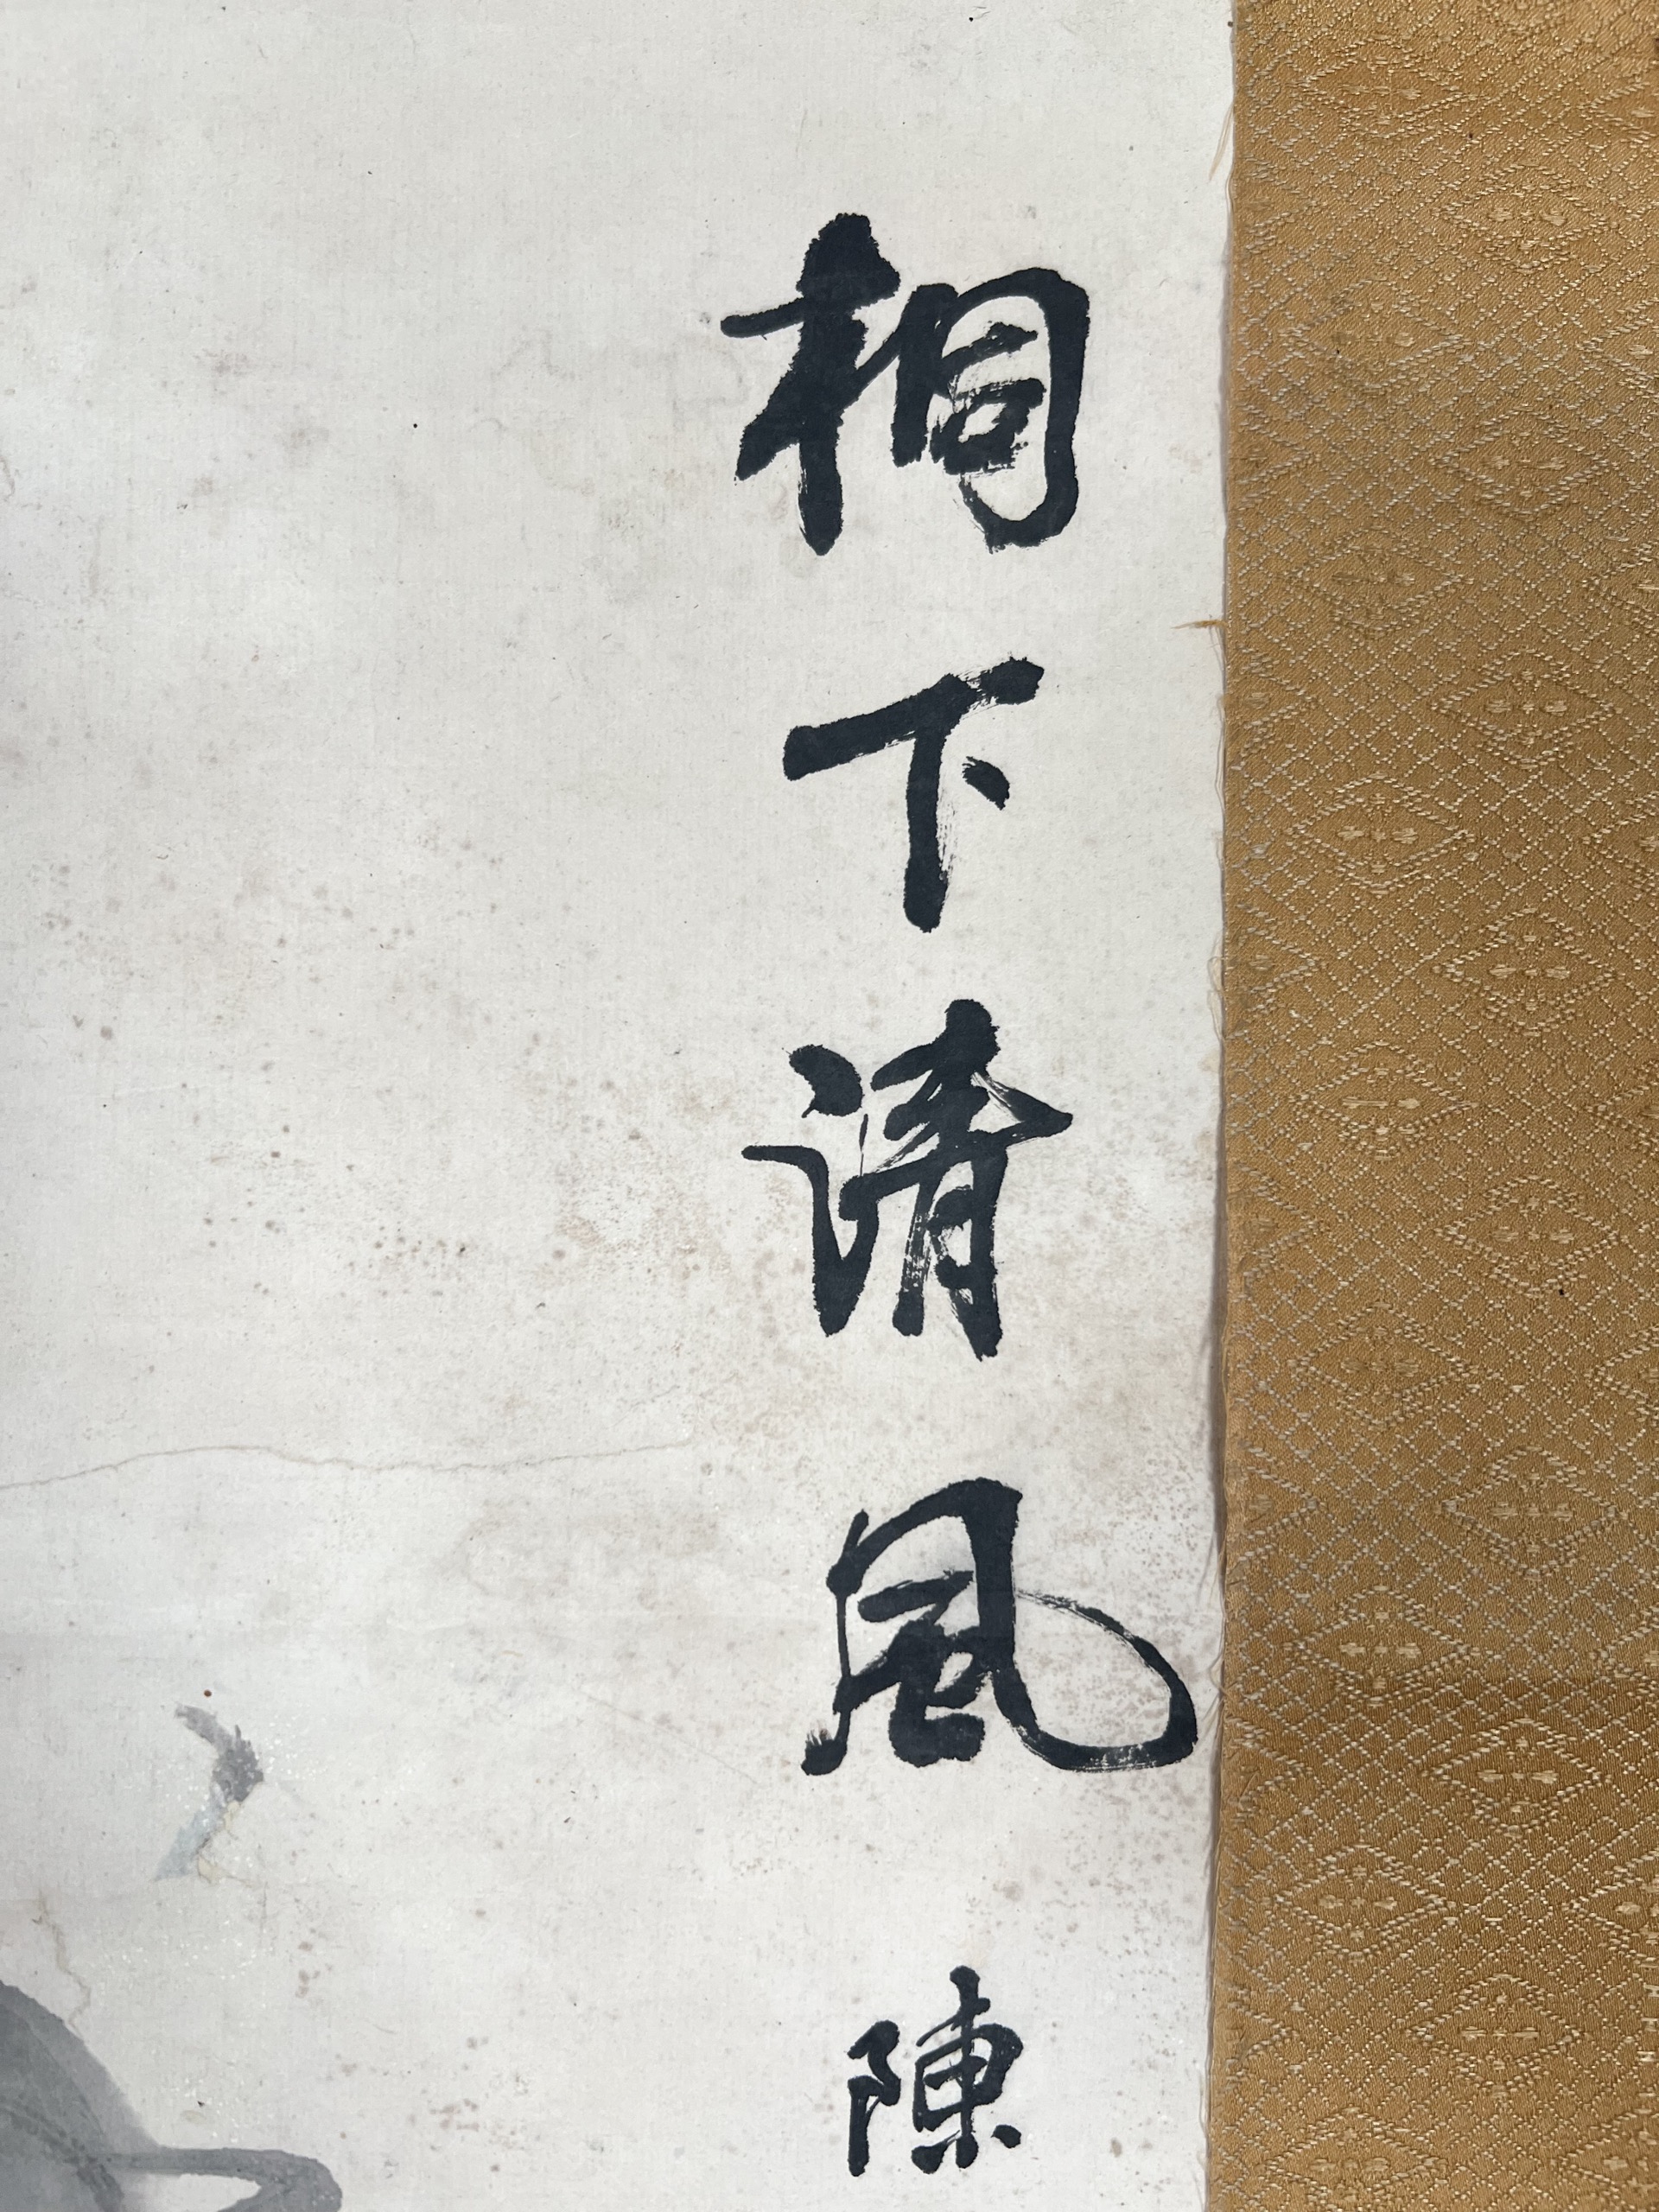 桐下清風 陳